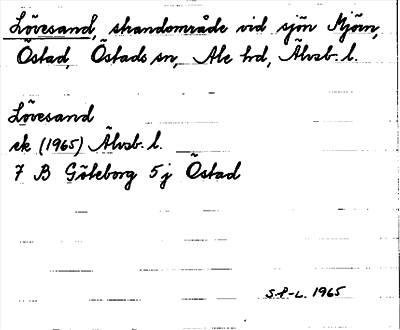 Lövesand, strandområde vid sjön Mjörn,
Östad, Östads sn, Ale hd, Älvsb. l.
Lövesand
ek (1965) Älvsb. l.
7 B Göteborg 5j Östad
S.P-L. 1965